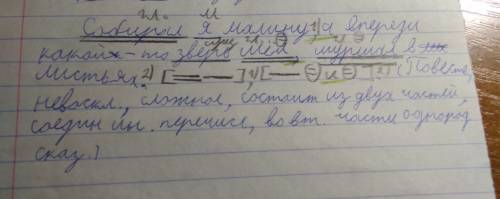 гл. м
Собирал я малину,1) а впереди
какой-то зверь шёл, шурша в
листьях.2) [═ —],1) [— ⊖ и ⊖].2) (Повеств,
невоскл., сложное, состоит из двух частей,
соедин ин. перечисл, во вт. части однород
сказ.)